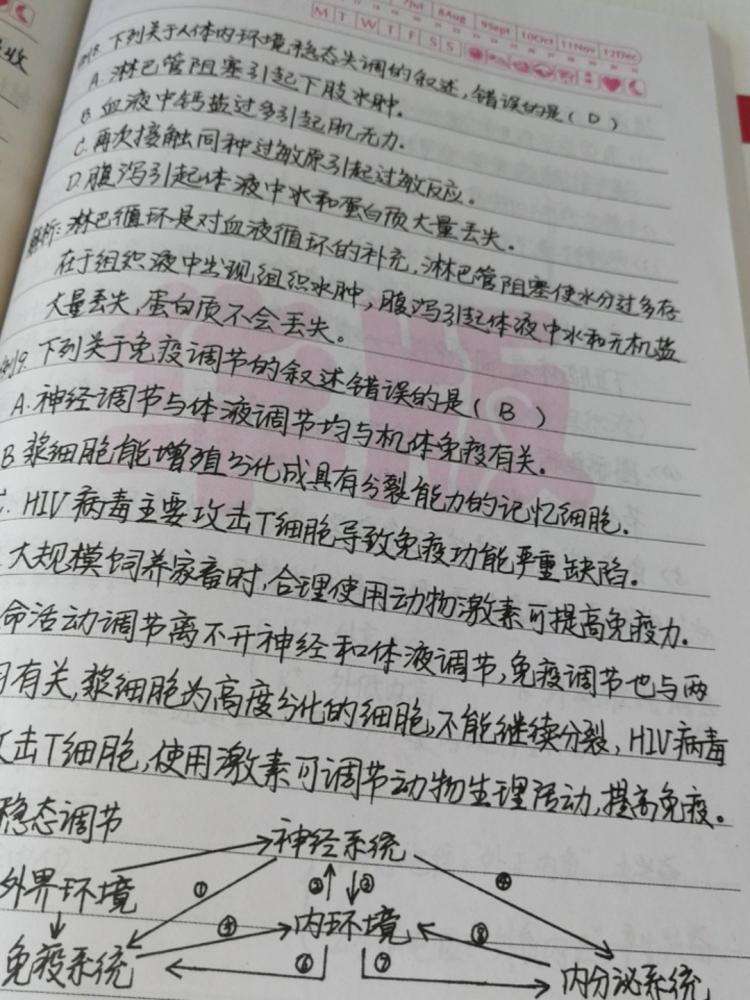 7Jul 8Aug 9Sept 10Oct 11Nov 12Dec
M T W T F S S
例18. 下列关于人体内环境稳态失调的叙述,错误的是( D )
A. 淋巴管阻塞引起下肢水肿.
B 血液中钙盐过多引起肌无力.
C. 再次接触同种过敏原引起过敏反应。
D. 腹泻引起体液中水和蛋白质大量丢失。
解析: 淋巴循环是对血液循环的补充,淋巴管阻塞使水分过多存
在于组织液中出现组织水肿,腹泻引起体液中水和无机盐
大量丢失,蛋白质不会丢失。
例19. 下列关于免疫调节的叙述错误的是( B )
A. 神经调节与体液调节均与机体免疫有关.
B 浆细胞能增殖分化成具有分裂能力的记忆细胞.
C. HIV病毒主要攻击T细胞导致免疫功能严重缺陷.
大规模饲养家畜时,合理使用动物激素可提高免疫力.
命活动调节离不开神经和体液调节,免疫调节也与两
有关,浆细胞为高度分化的细胞,不能继续分裂,HIV病毒
攻击T细胞,使用激素可调节动物生理活动,提高免疫。
稳态调节
神经系统
外界环境 ① ③ ② ④
④ 内环境 ⑧
免疫系统 ⑥ ⑦ 内分泌系统